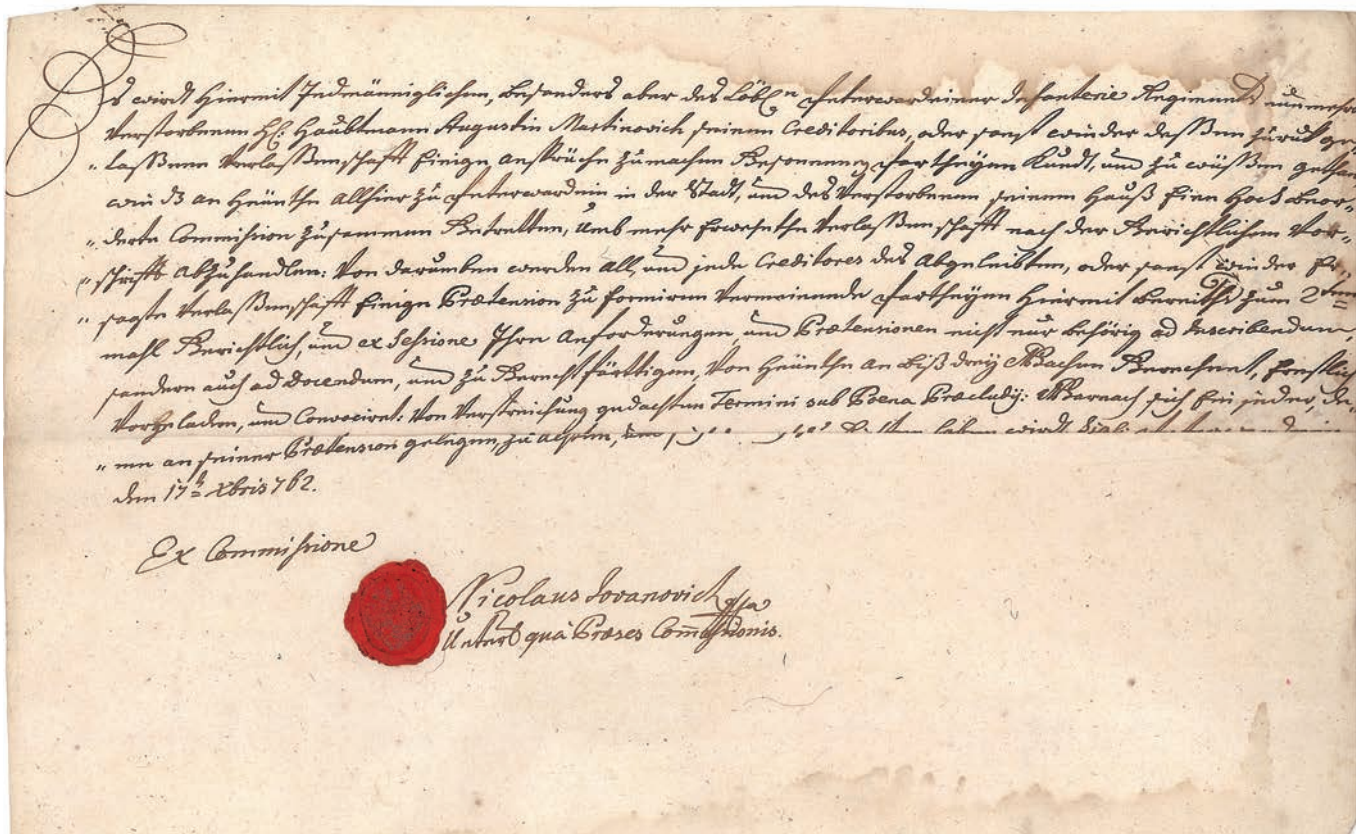 Es wird hiermit Jedmänniglichen, besonders aber des Löbl: Peterwardeiner Infanterie Regiments nunmehro
verstorbenen H: Haubtmann Augustin Martinovich seinen Creditoribus, oder sonst wieder dessen zuruk ge„
„lassene Verlassenschafft einige ansprüche zu machen Besonnenen Partheyen Kundt, und zu wüssen gethan,
wie daß an heünthe allhier zu Peterwardein in der Stadt, und des Verstorbenen seinem Hauß Eine Hoch beor„
„derte Commission zusammen Betretten, umb mehr Erwehnthe Verlassenschafft nach der Gerichtlichen Vor„
„schrifft abzuhandlen: Von darumben werden all, und jede Creditores des Abgeleibten, oder sonst wieder Er„
„sagte Verlassenschafft Einige Prætension zu formiren vermeinende Partheyen hiermit bereiths zum 2ten
mahl Gerichtlich, und ex Sessione Ihre Anforderungen, und Prætensionen nicht nur behörig ad Inscribendum,
sondern auch ad Docendum, und zu Gerechtfärttigen, Von heünthe an biß drey Wochen Gerechnet, Ernstlich
Vorgeladen, und Convociret: Von Verstreichung gedachten Termini sub Poena Præclusy: Wornach sich Ein jeder, de„
„me an seiner Prætension gelegen, zu achten, und wird
den 17t xbris 762.
Ex Commissione
Nicolaus Iovanovich
quà Præses Commissionis.